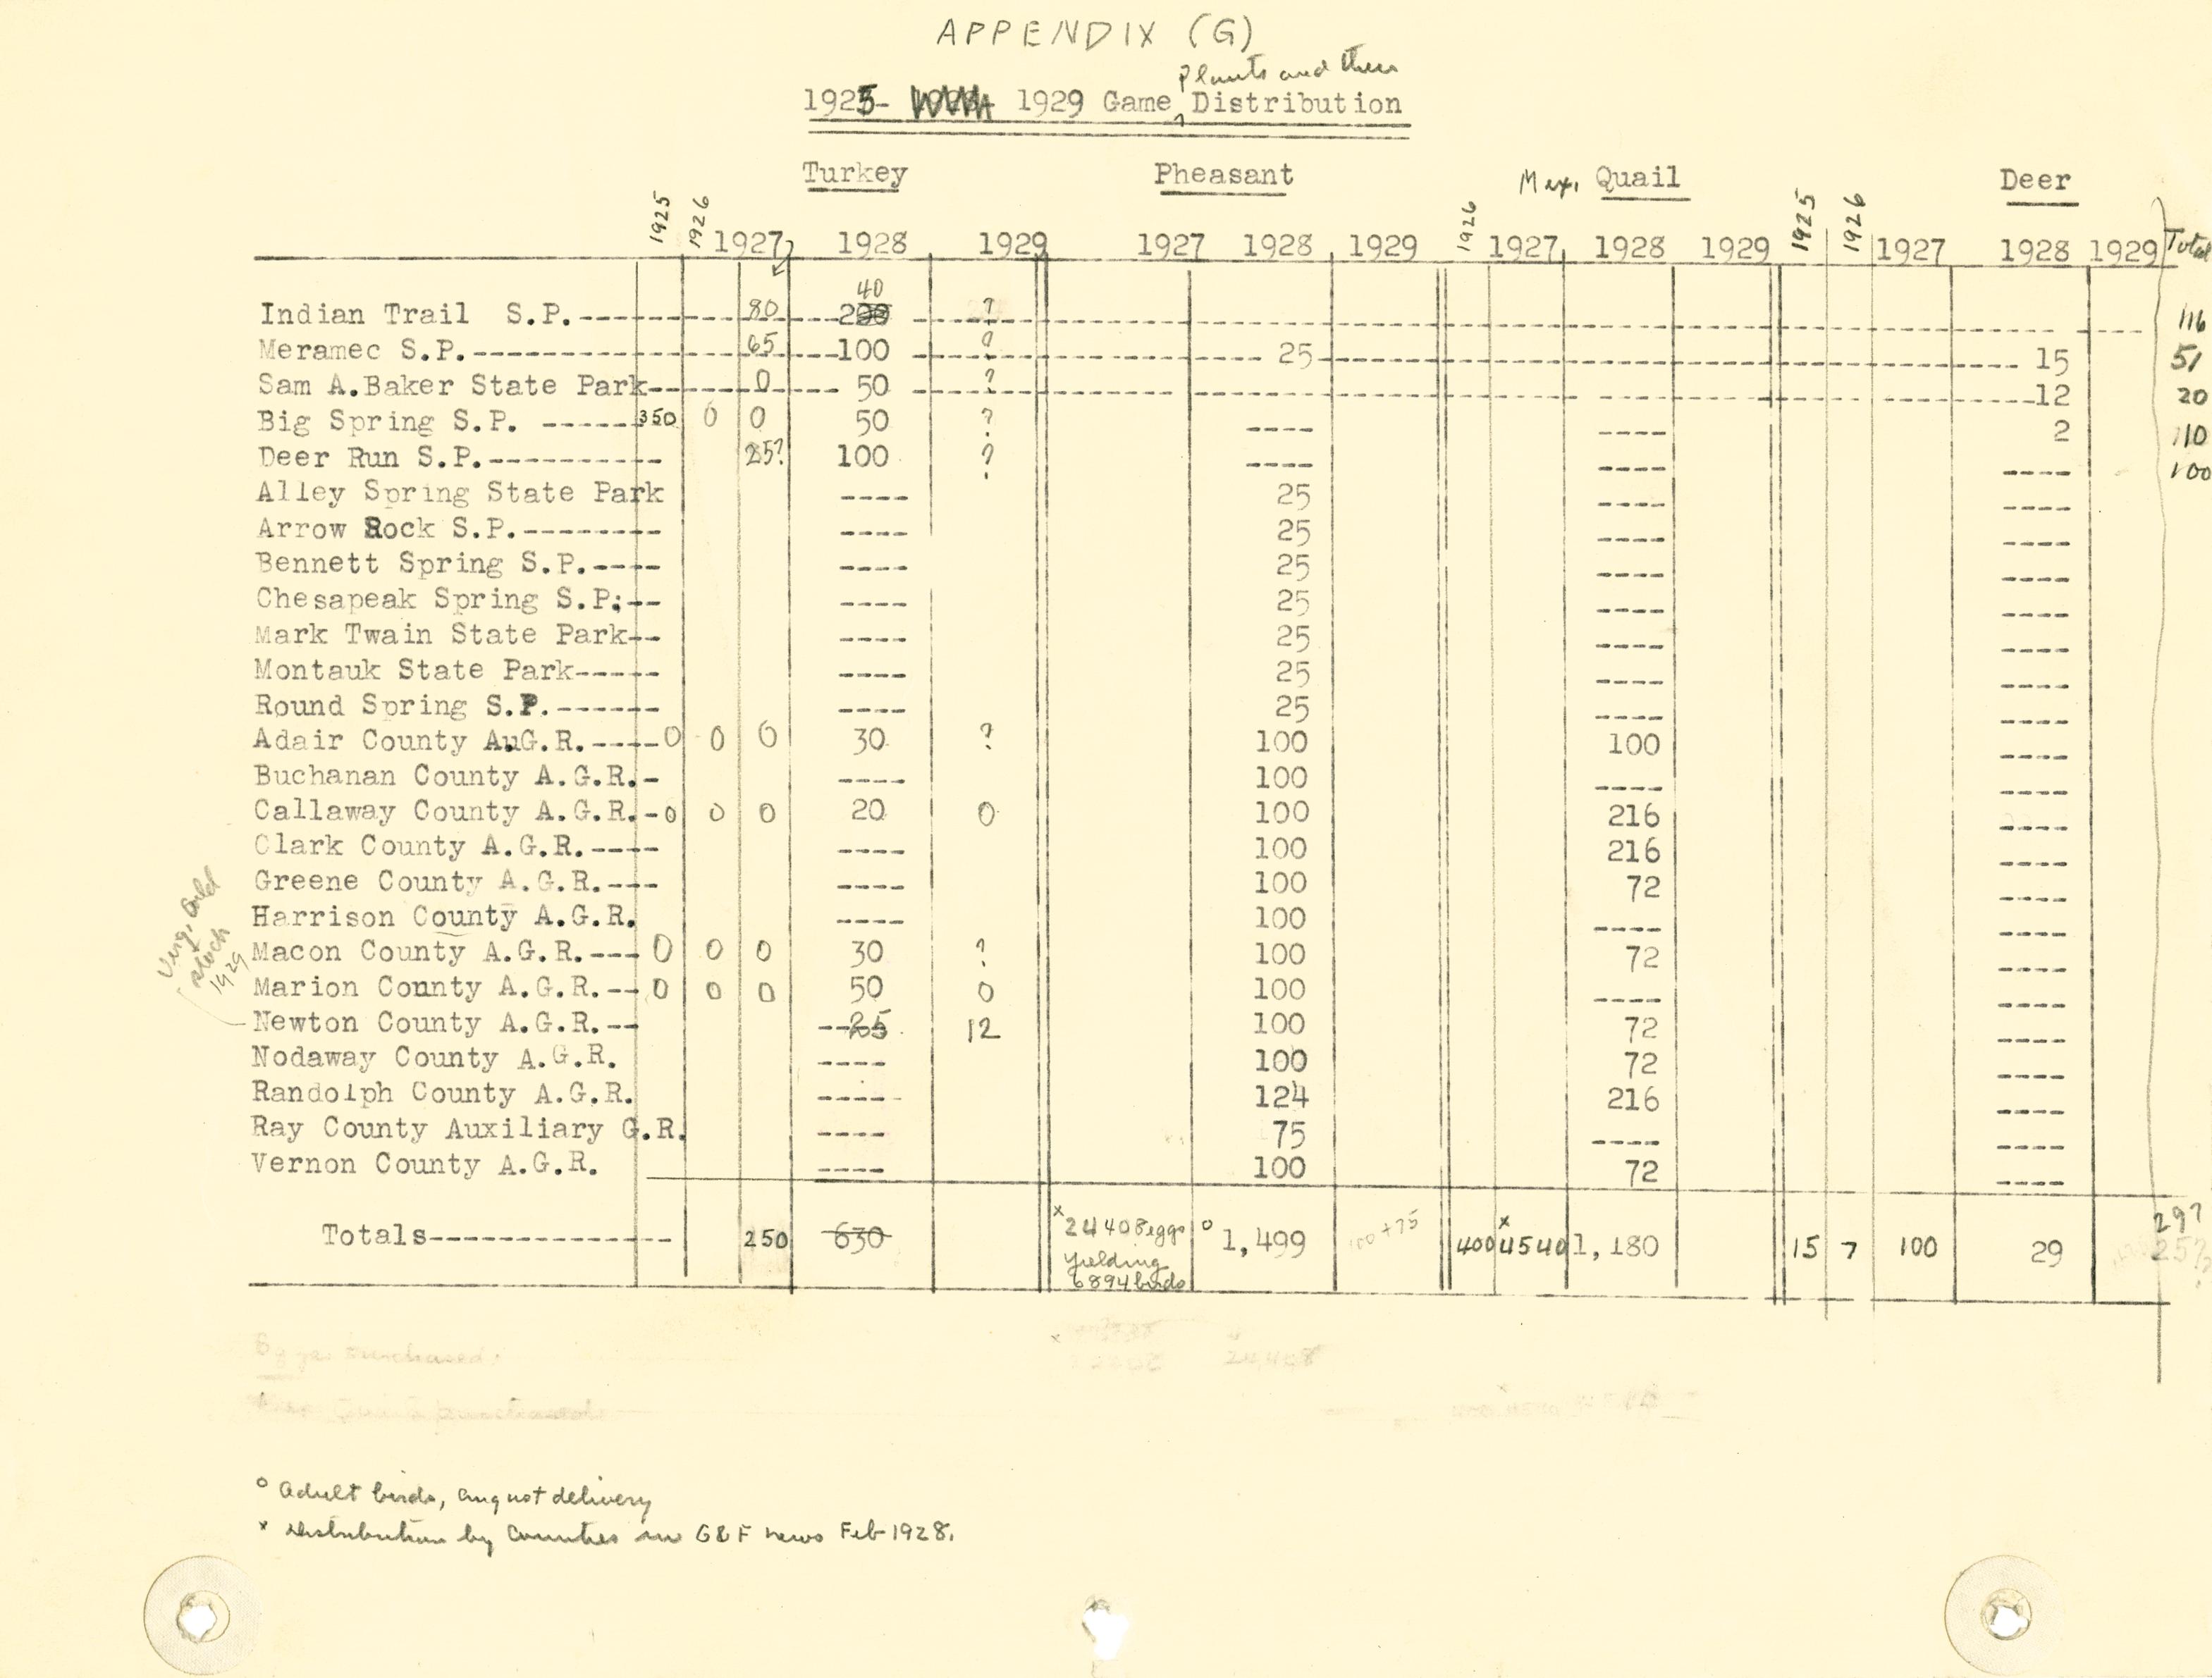 APPENDIX (G)
Plants and their
1925- 1929 Game Distribution
Turkey Pheasant Mex. Quail Deer
1925 1926 1927 1928 1929 1927 1928 1929 1926 1927 1928 1929 1925 1926 1927 1928 1929 Total
40
Indian Trail S.P.--- 80 200 ? 116
Meramec S.P.--- 65 100 ? 25 15 51
Sam A.Baker State Park--- 0 50 ? 12 20
Big Spring S.P. --- 350 0 0 50 ? ---- ---- 2 110
Deer Run S.P.--- 25? 100 ? ---- ---- ---- 100
Alley Spring State Park ---- 25 ---- ----
Arrow Rock S.P.--- ---- 25 ---- ----
Bennett Spring S.P.---- ---- 25 ---- ----
Chesapeak Spring S.P:-- ---- 25 ---- ----
Mark Twain State Park-- ---- 25 ---- ----
Montauk State Park----- ---- 25 ---- ----
Round Spring S.P.------ ---- 25 ---- ----
Adair County AuG.R.---- 0 0 0 30 ? 100 100 ----
Buchanan County A.G.R.- ---- 100 ---- ----
Callaway County A.G.R.- 0 0 0 20 0 100 216 ----
Clark County A.G.R.---- ---- 100 216 ----
Greene County A.G.R.--- ---- 100 72 ----
Harrison County A.G.R. ---- 100 ---- ----
Macon County A.G.R.--- 0 0 0 30 ? 100 72 ----
Marion County A.G.R.-- 0 0 0 50 0 100 ---- ----
Virg. Cold stock 1929
Newton County A.G.R.-- --25 12 100 72 ----
Nodaway County A.G.R. ---- 100 72 ----
Randolph County A.G.R. ---- 124 216 ----
Ray County Auxiliary G.R. ---- 75 ---- ----
Vernon County A.G.R. ---- 100 72 ----
Totals--------------- 250 630 x 24408 eggs yielding 6894 birds o 1,499 100+75 400 x 4540 1,180 15 7 100 29 297
257?
24,408
o Adult birds, August delivery
x Distribution by Counties in G&F News Feb 1928.